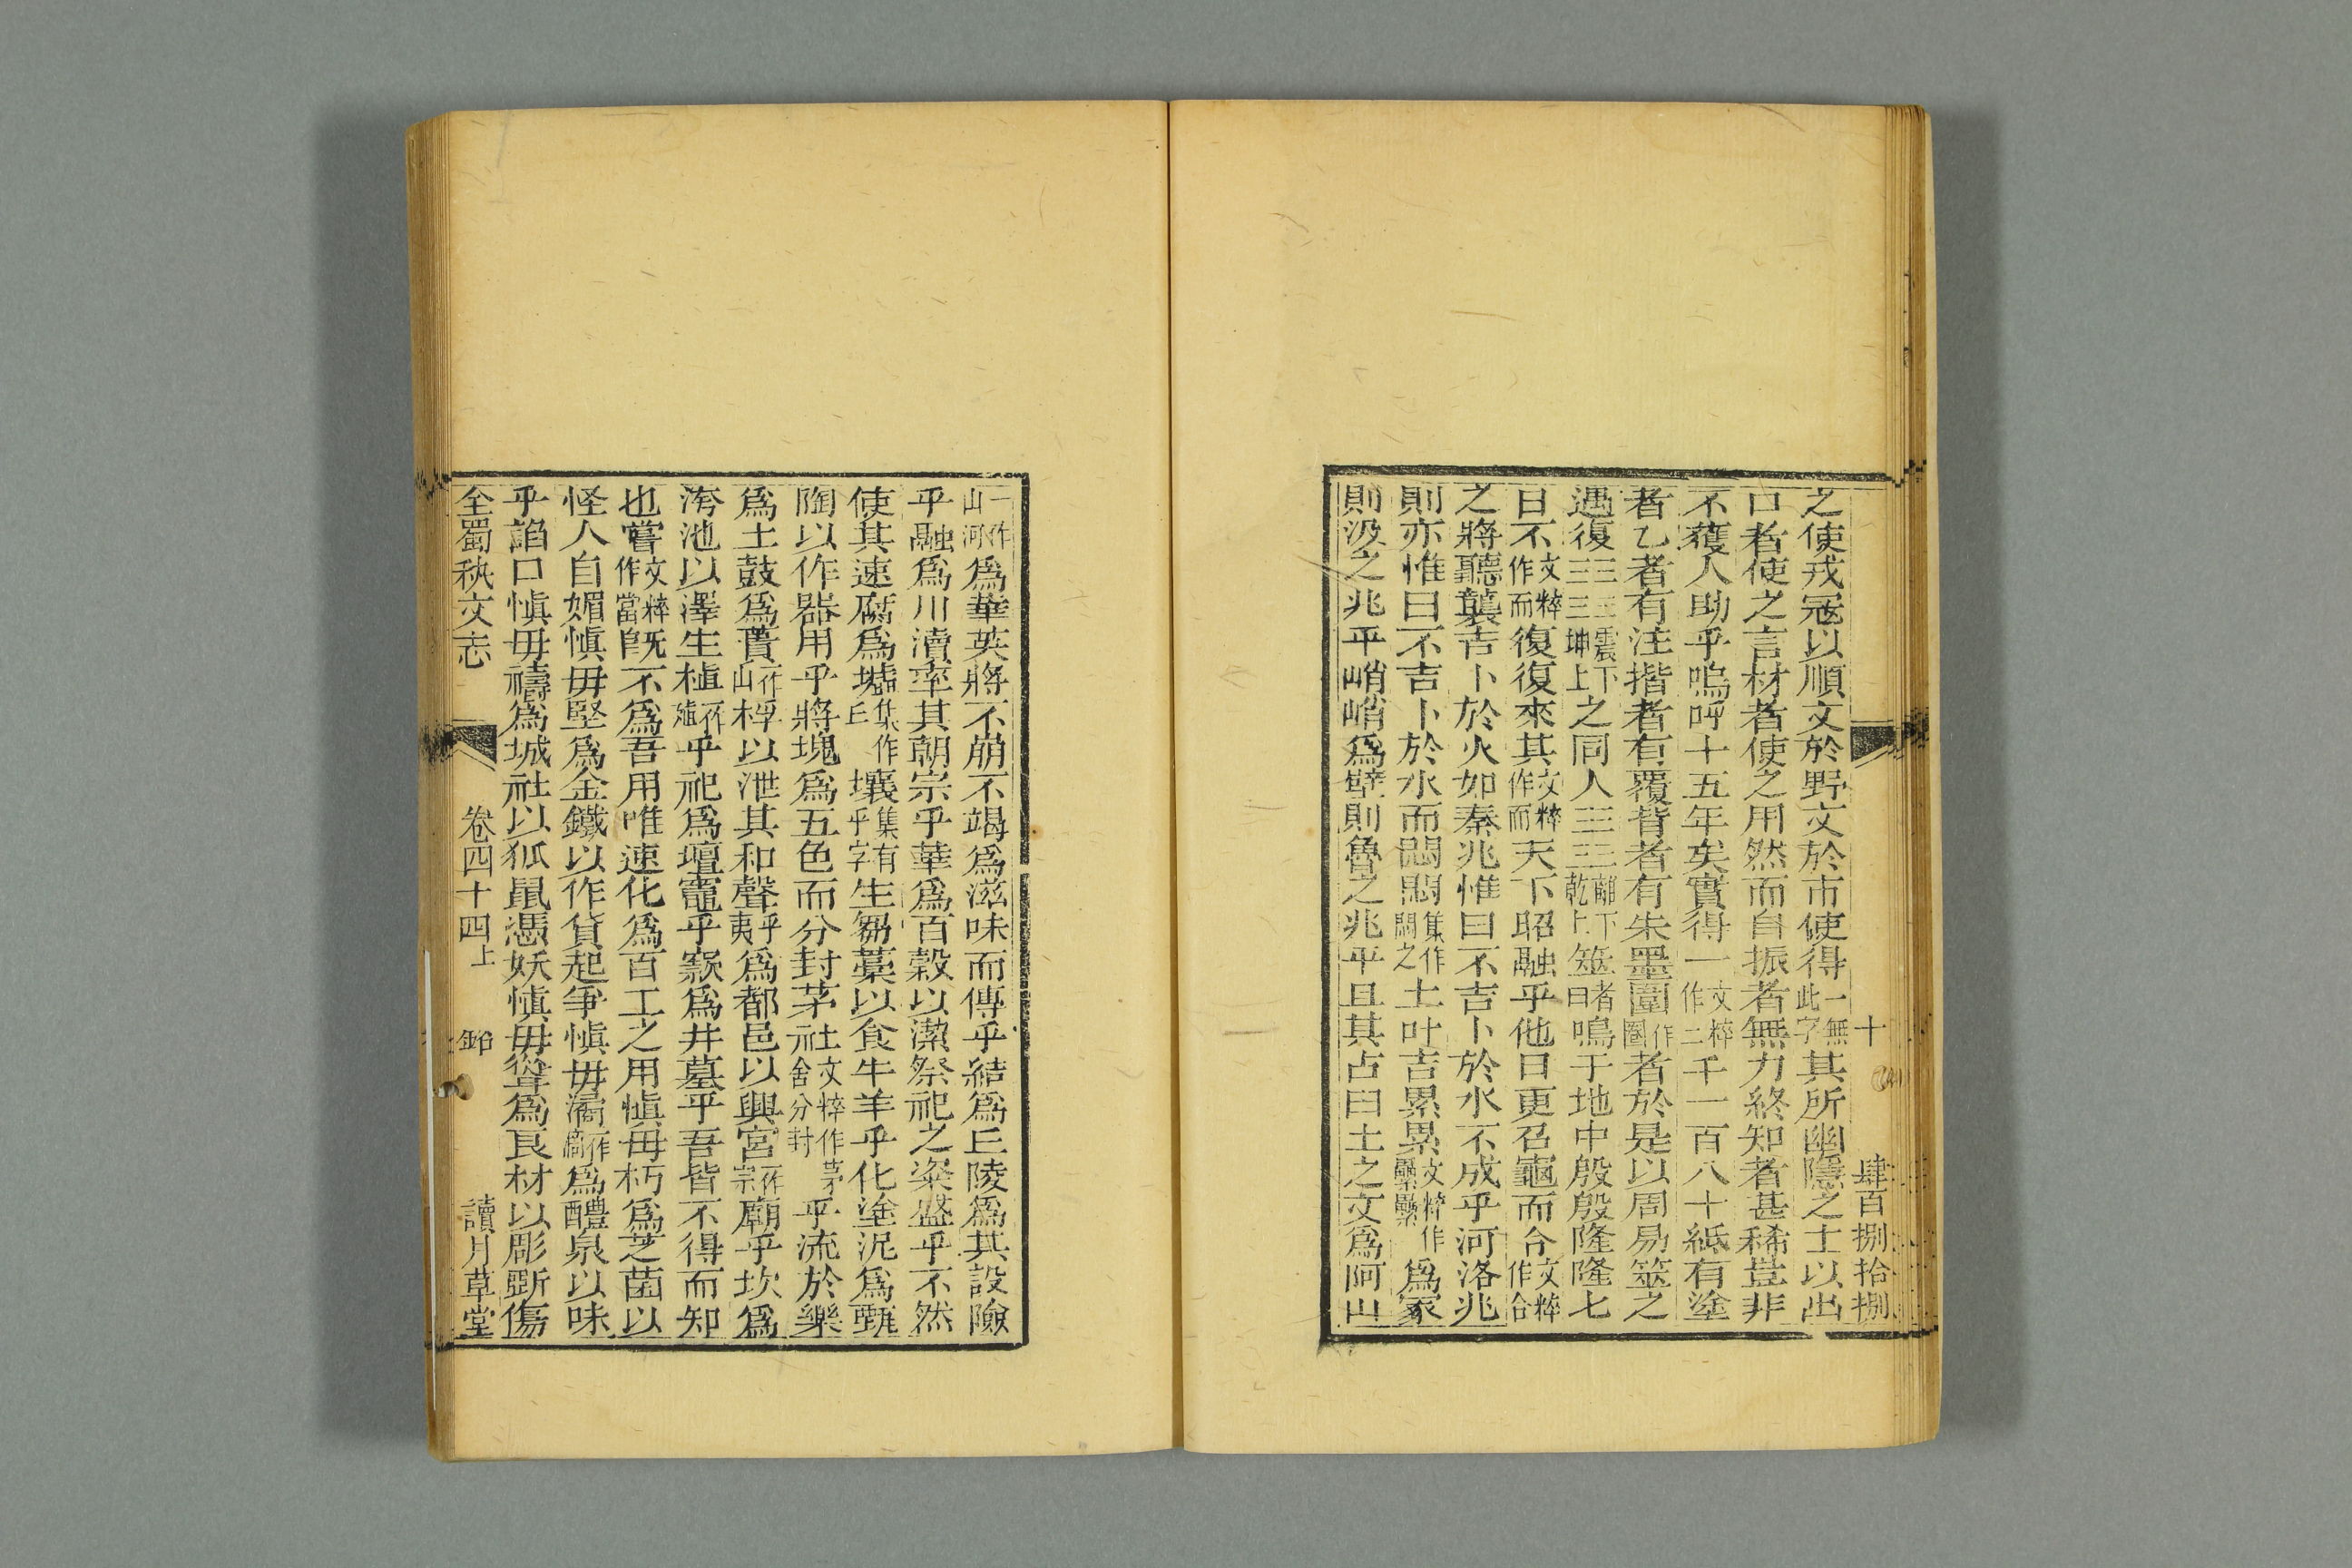 十 肆百捌拾捌
之使戎冦以順文於野文於市使得一無此字其所幽隱之士以出
口者使之言材者使之用然而自振者無力終知者甚稀豈非
不獲人助乎嗚呼十五年矣實得一文粹作二千一百八十紙有塗
者乙者有注揩者有覆背者有朱墨圍作圈者於是以周易筮之
遇復☳☷震下坤上之同人☲☰離下乾上筮者曰鳴于地中殷殷隆隆七
日不文粹作而復復來其文粹作而天下昭融乎他日更召龜而令文粹作合
之將聽龔吉卜於火如秦兆惟曰不吉卜於水不成乎河洛兆
則亦惟曰不吉卜於水而悶悶集作閟之土叶吉累累文粹作纍纍爲冢
則汲之兆乎峭峭爲壁則魯之兆乎且其占曰土之文爲阿山
一作山河爲華英將不崩不竭爲滋味而傳乎結爲丘陵爲其設險
乎融爲川瀆率其朝宗乎華爲百榖以潔祭祀之粢盛乎不然
使其速腐爲墟集作丘壤集有乎字生芻藁以食牛羊乎化塗泥爲甄
陶以作器用乎將塊爲五色而分封茅社文粹作茅舍分封乎流於樂
爲土鼓爲蕢作山桴以泄其和聲乎夷爲都邑以興宮一作宗廟乎坎爲
洿池以澤生植一作殖乎祀爲壇竈乎竅爲井墓乎吾皆不得而知
也嘗文粹作當旣不爲吾用唯速化爲百工之用愼毋朽爲芝菌以
怪人自媚愼毋堅爲金鐵以作貨起爭愼毋濡作爲醴泉以味
乎諂口愼毋禱爲城社以狐鼠憑妖愼毋聳爲良材以彫斲傷
全蜀秇文志 卷四十四上 讀月草堂